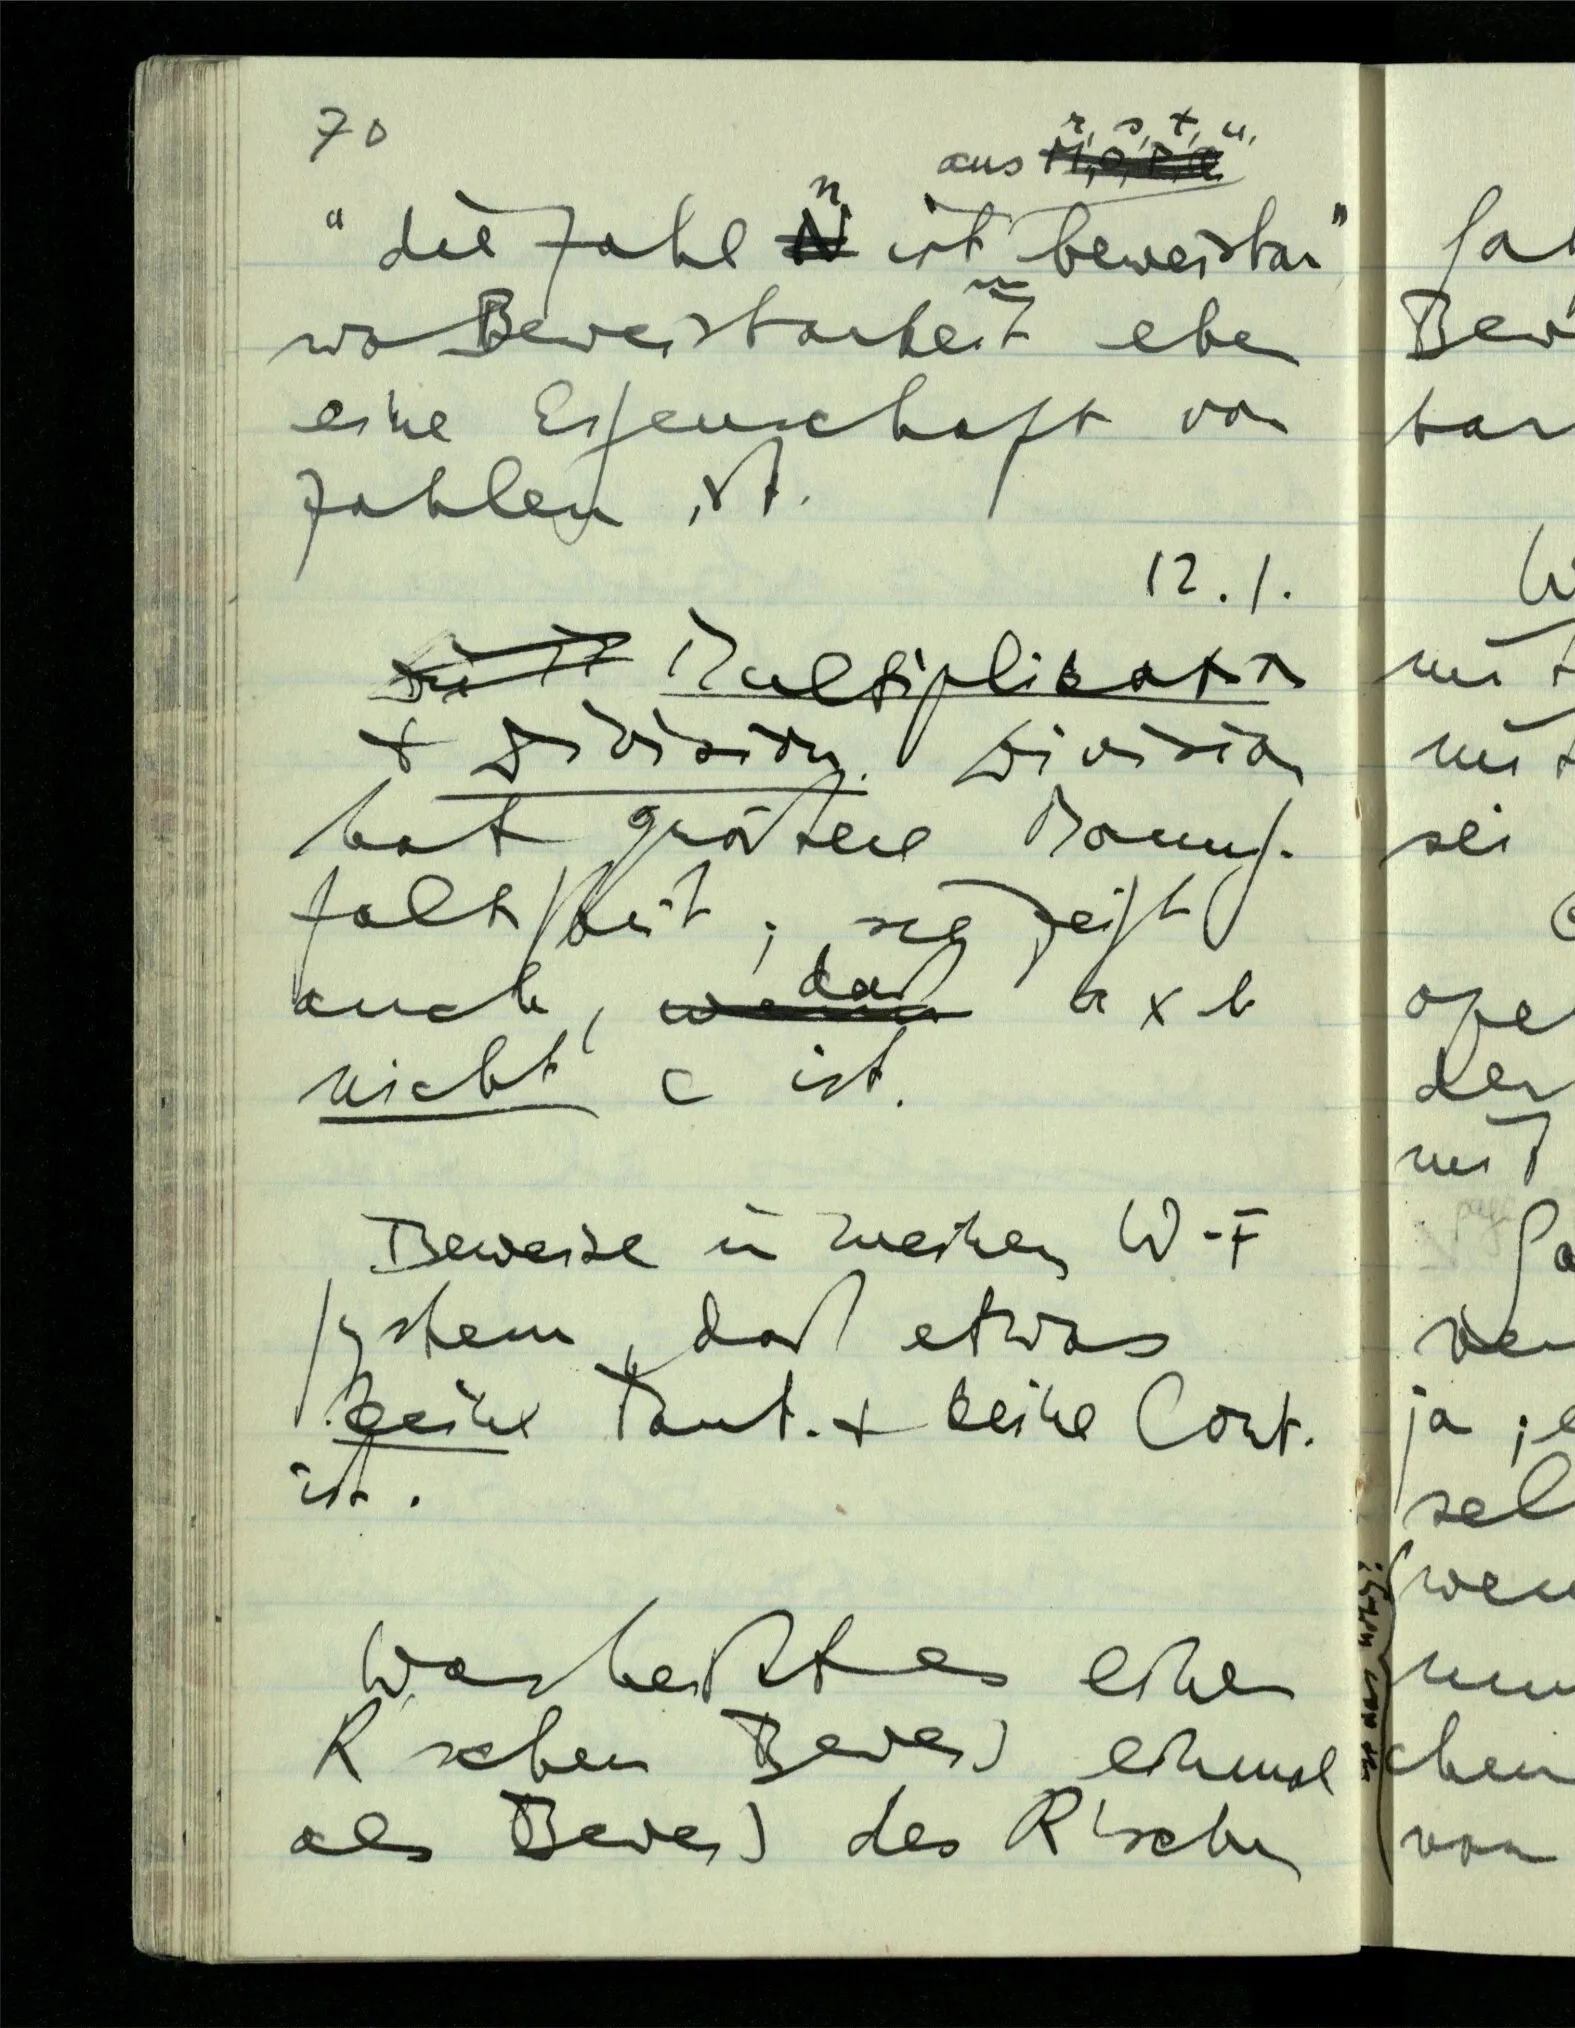 70
aus r, s, t, u,
"die Zahl n ist beweisbar"
wo Beweisbarkeit eben
eine Eigenschaft von
Zahlen ist.
12.1.
Multiplikation
+ Division. Division
hat größere Mannig-
faltigkeit; sie zeigt
auch, daß a x b
nicht c ist.
Beweise in meinem W-F
System, daß etwas
keine Taut. + keine Cont.
ist.
Was heißt es einen
R'schen Beweis einmal
als Beweis des R'schen